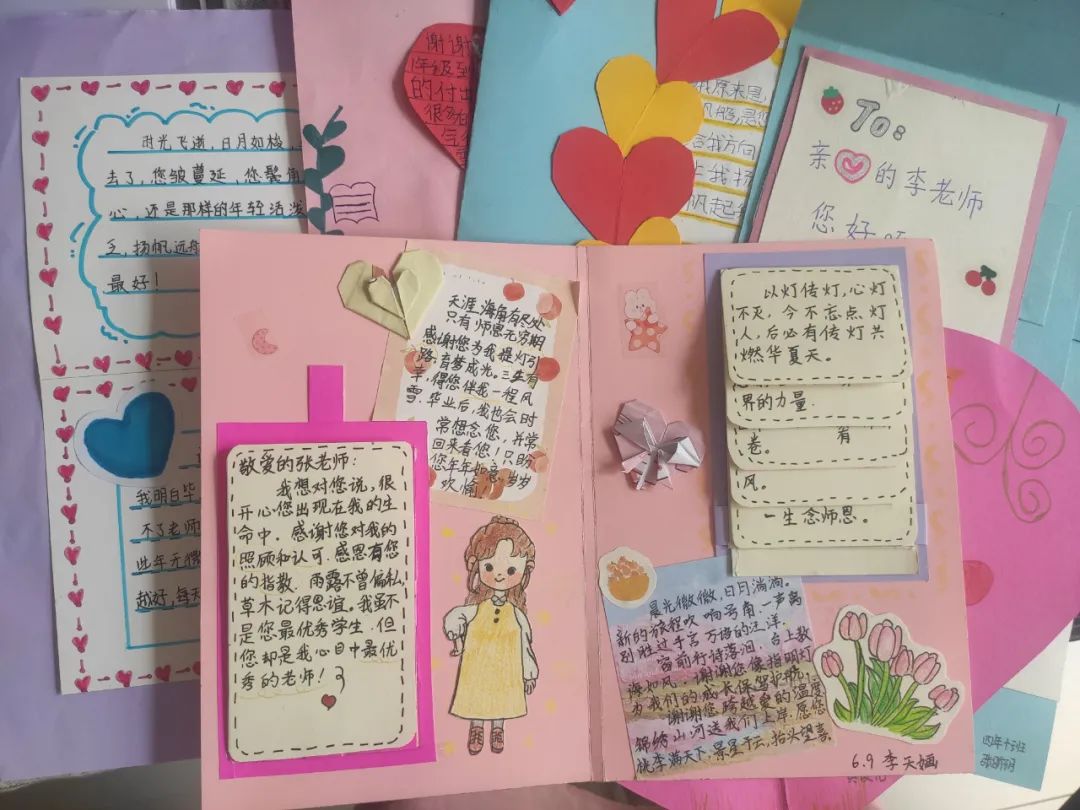 时光飞逝，日月如梭，
去了，您皱蔓延，您鬓角
心，还是那样的年轻活泼
乏，扬帆远航
最好！
我明白毕
不了老师
些年无微
越好，每天
谢谢
年级到
的付出
很
我原来是
给我方向
让我扬
帆起
To:
亲 的李老师
您好
天涯海角有尽处
只有师恩无穷期
感谢您为我提灯引
路，育梦成光。三生有
幸，得您伴我一程风
雪。毕业后，我也会时
常想念您，并常
回来看您！只盼
您年年如意，岁岁
欢愉！
敬爱的张老师：
我想对您说，很
开心您出现在我的生
命中。感谢您对我的
照顾和认可。感恩有您
的指教。雨露不曾偏私，
草木记得恩谊。我虽不
是您最优秀学生，但
您却是我心目中最优
秀的老师！
以灯传灯，心灯
不灭，今不忘点灯
人，后必有传灯共
燃华夏天。
界的力量.
有
卷。
风。
一生念师恩。
晨光微微，日月淌淌。
新的旅程吹响号角，一声离
别胜过千言万语的汪洋。
台上教
窗前行诗落泪，
海如风，谢谢您像指明灯
为我们的成长保驾护航，
谢谢您跨越爱的温度
锦绣山河送我们上岸，愿您
桃李满天下，景星千云，抬头望喜。
6.9 李天
四年十班